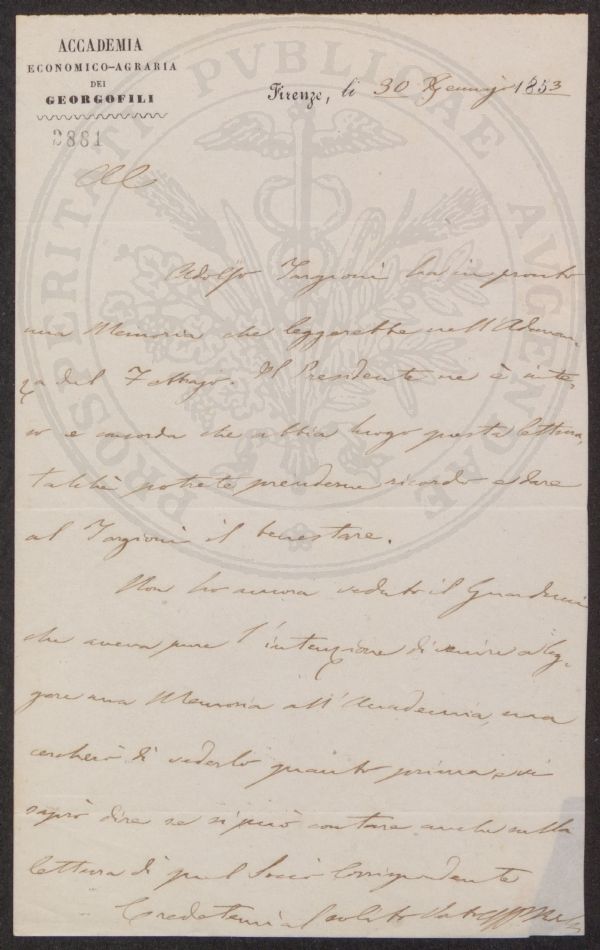 ACCADEMIA
ECONOMICO-AGRARIA
DEI
GEORGOFILI
2881
Firenze, li 30 Gennajo 1853
PROSPERITATI PVBLICAE AVGENDAE
Adolfo Targioni ha in pronto
una Memoria che leggerebbe nell'Adunan-
za del 7
Il Presidente ne è inte-
so e concorda che abbia luogo questa lettura,
talchè potrete prenderne ricordo e dare
al Targioni il benestare.
Non ho ancora veduto il
che aveva pure l'intenzione di venire a leg-
gere una Memoria all'Accademia, ma
cercherò di vederlo quanto prima e vi
saprò dire se si può contare anche sulla
lettura di quel Socio Corrispondente
Credetemi al solito